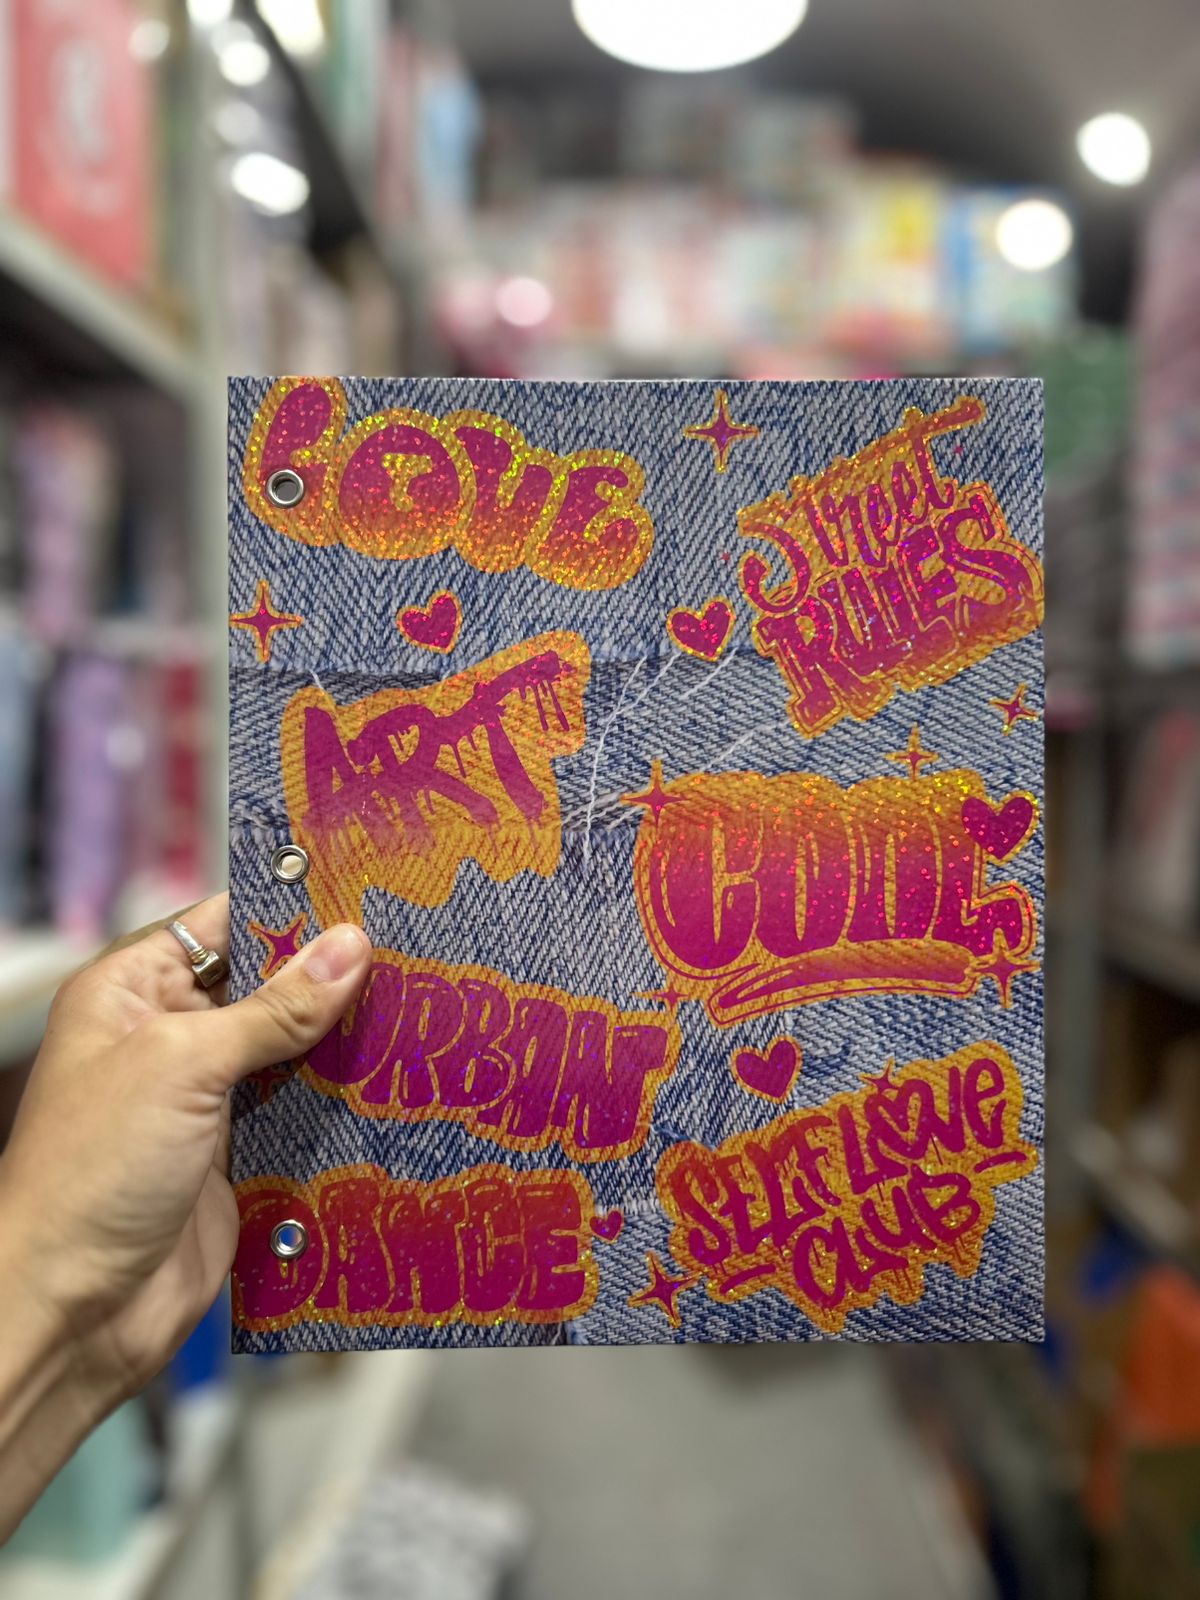 LOVE
Street
RULES
ART
COOL
URBAN
SELF LOVE
CLUB
DANCE